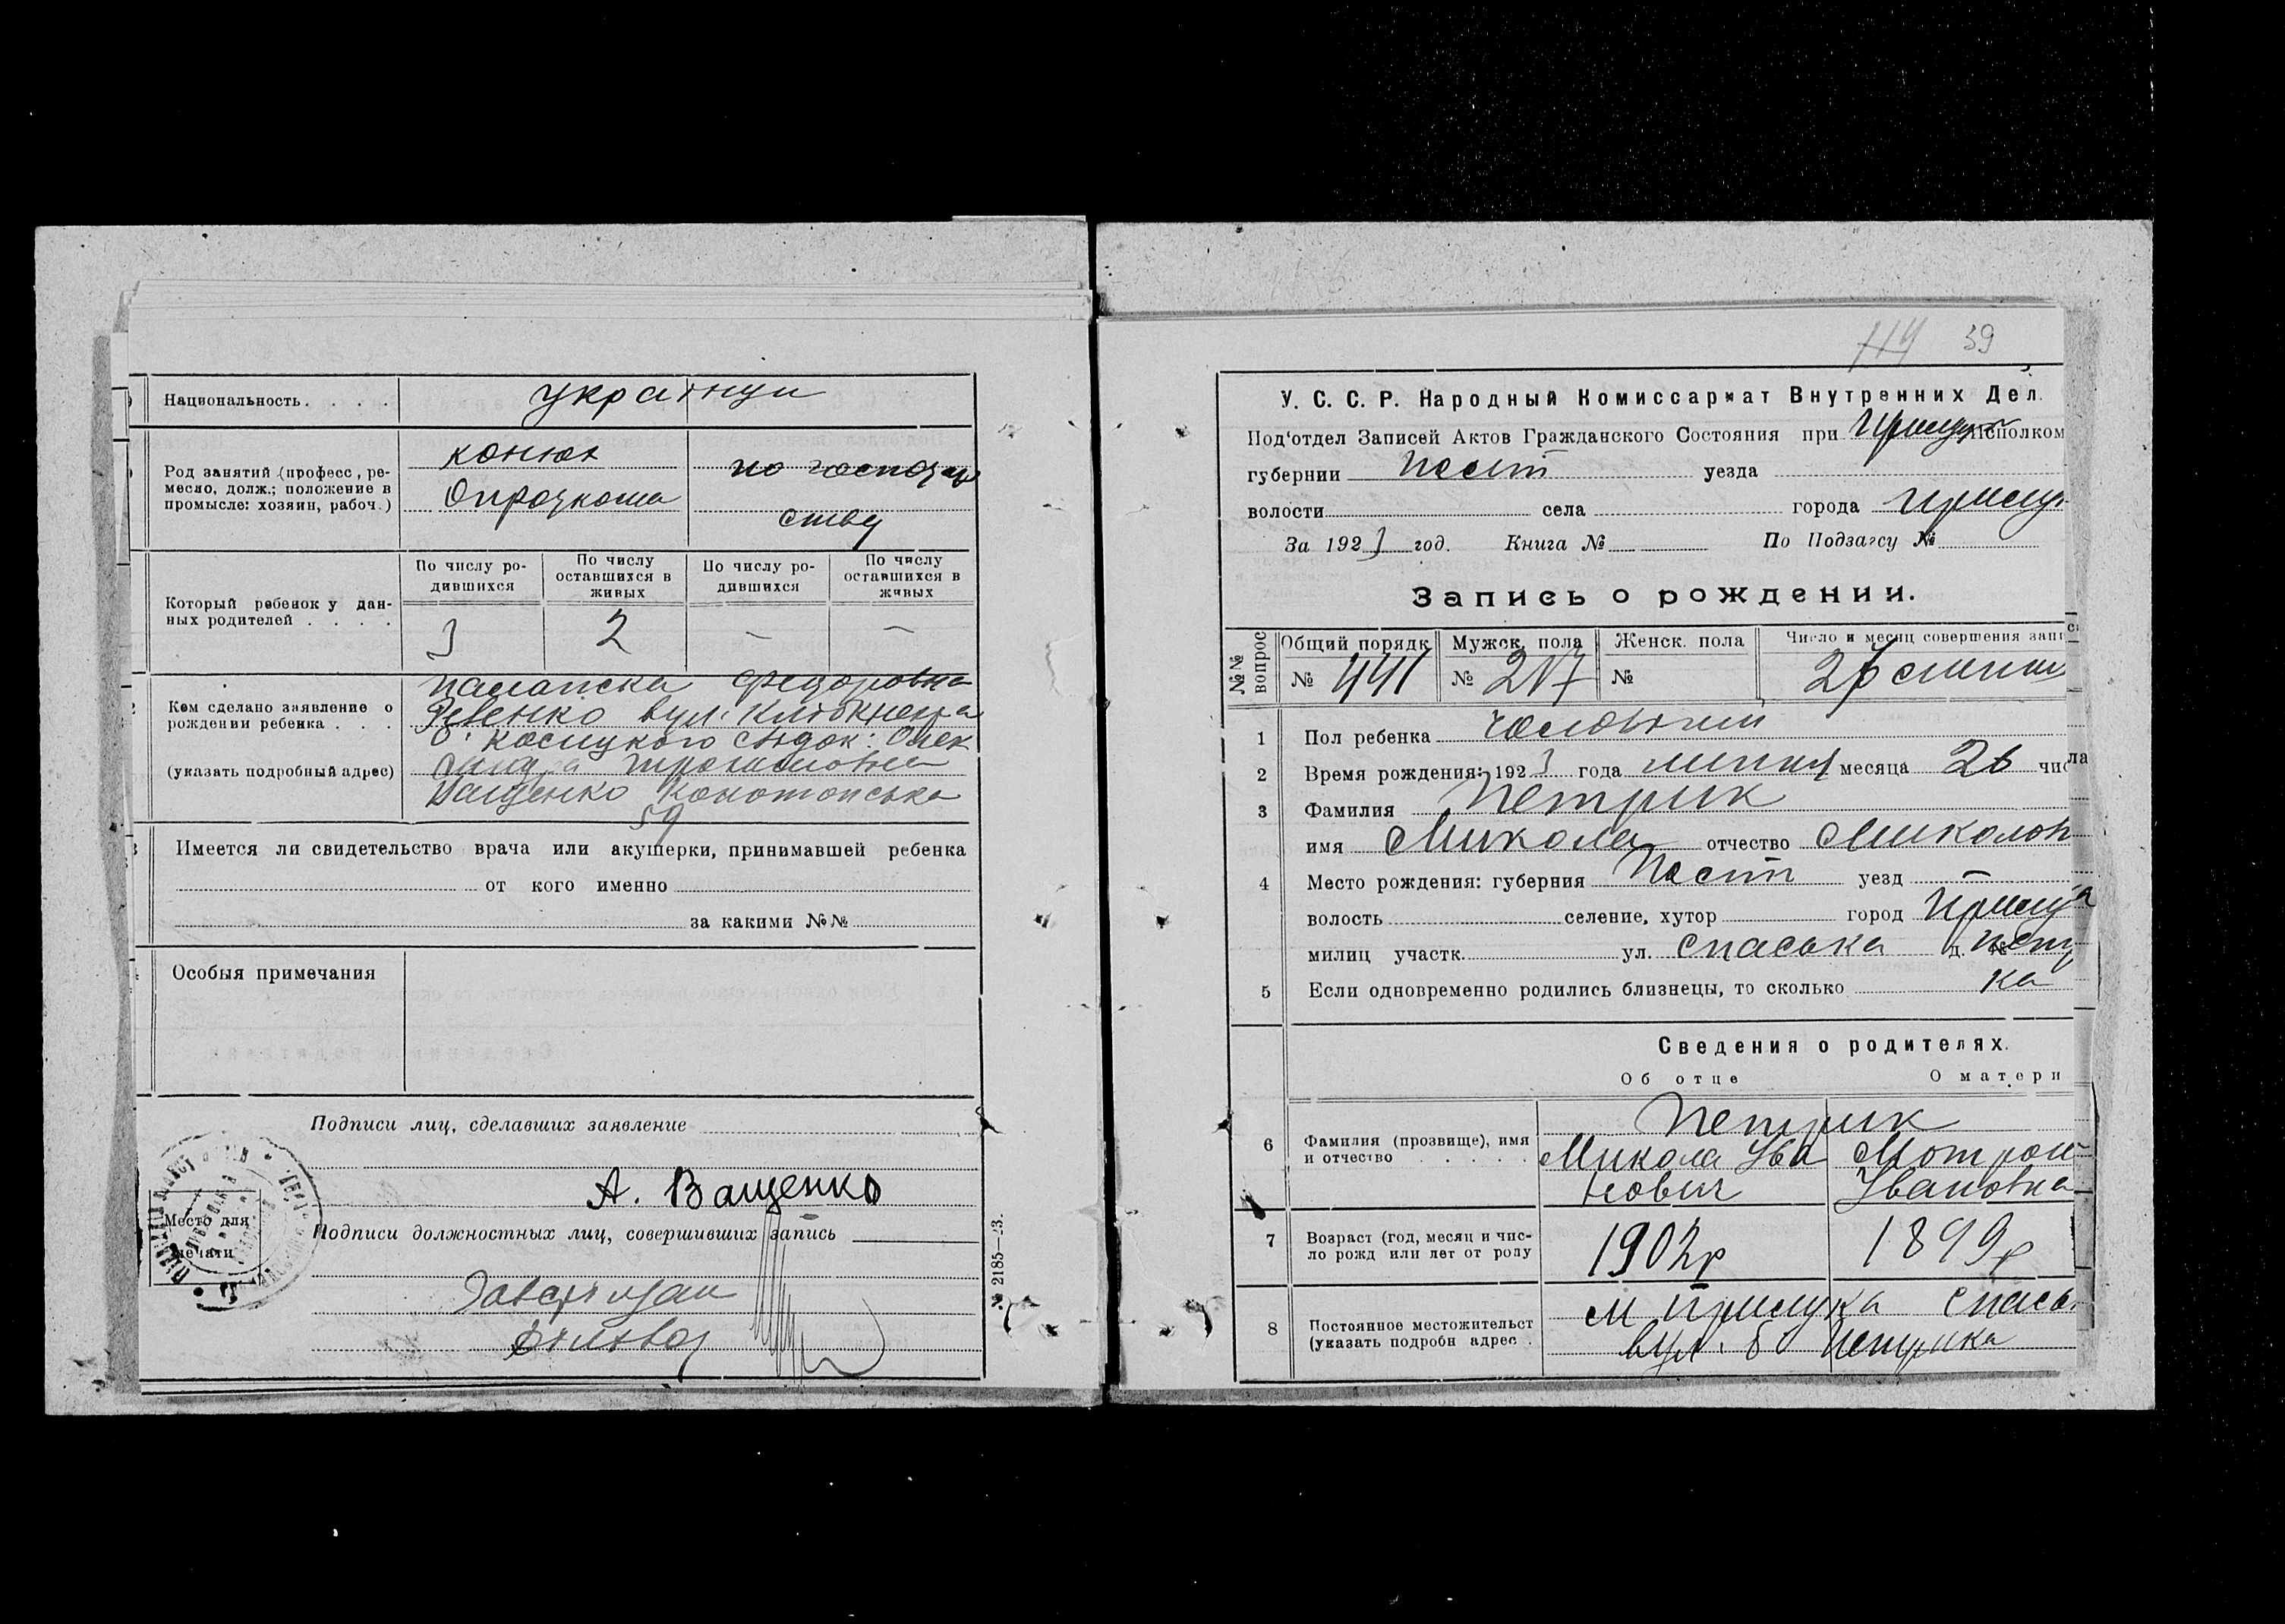 Национальность. . . . .
українци
Род занятий (професс, ре-
месло, долж.; положение в
промысле: хозяин, рабоч.)
конюх
по господар
ству
Который ребенок у дан-
ных родителей . . . .
По числу ро-
дившихся
По числу
оставшихся в
живых
По числу ро-
дившихся
По числу
оставшихся в
живых
3 2 — —
Кем сделано заявление о
рождении ребенка . . .
(указать подробный адрес)
Федоровна
Ревенко вул.
б. Косицкого свідок: Олек
Ващенко Конотопська
59
Имеется ли свидетельство врача или акушерки, принимавшей ребенка
от кого именно
за какими №№
Особыя примечания
Подписи лиц, сделавших заявление
А. Ващенко
Подписи должностных лиц, совершивших запись
Место для
печати
№ 2185—23.
119 39
У. С. С. Р. Народный Комиссариат Внутренних Дел.
Под'отдел Записей Актов Гражданского Состояния при Прилуцьк Исполком
губернии Полт уезда
волости села города Прилук
За 1923 год. Книга № По Подзагсу №
Запись о рождении.
№№ вопрос
Общий порядк Мужск. пола Женск. пола Число и месяц совершения запи
№ 441 № 217 №
1 Пол ребенка чоловічий
2 Время рождения: 1923 года липня месяца 26 числа
3 Фамилия Петрик
имя Микола отчество Миколов
4 Место рождения: губерния Полт уезд —
волость селение, хутор город Прилука
милиц участк. ул. Спаська д. № Петр
ка
5 Если одновременно родились близнецы, то сколько
Сведения о родителях.
Об отце О матери
6 Фамилия (прозвище), имя
и отчество . . . . .
Петрик
Микола Іва Мотрон
нович Івановна
7 Возраст (год, месяц и чис-
ло рожд или лет от роду
1902р 1899р
8 Постоянное местожительст
(указать подробн адрес .
м Прилука Спась
вул. б Петрика